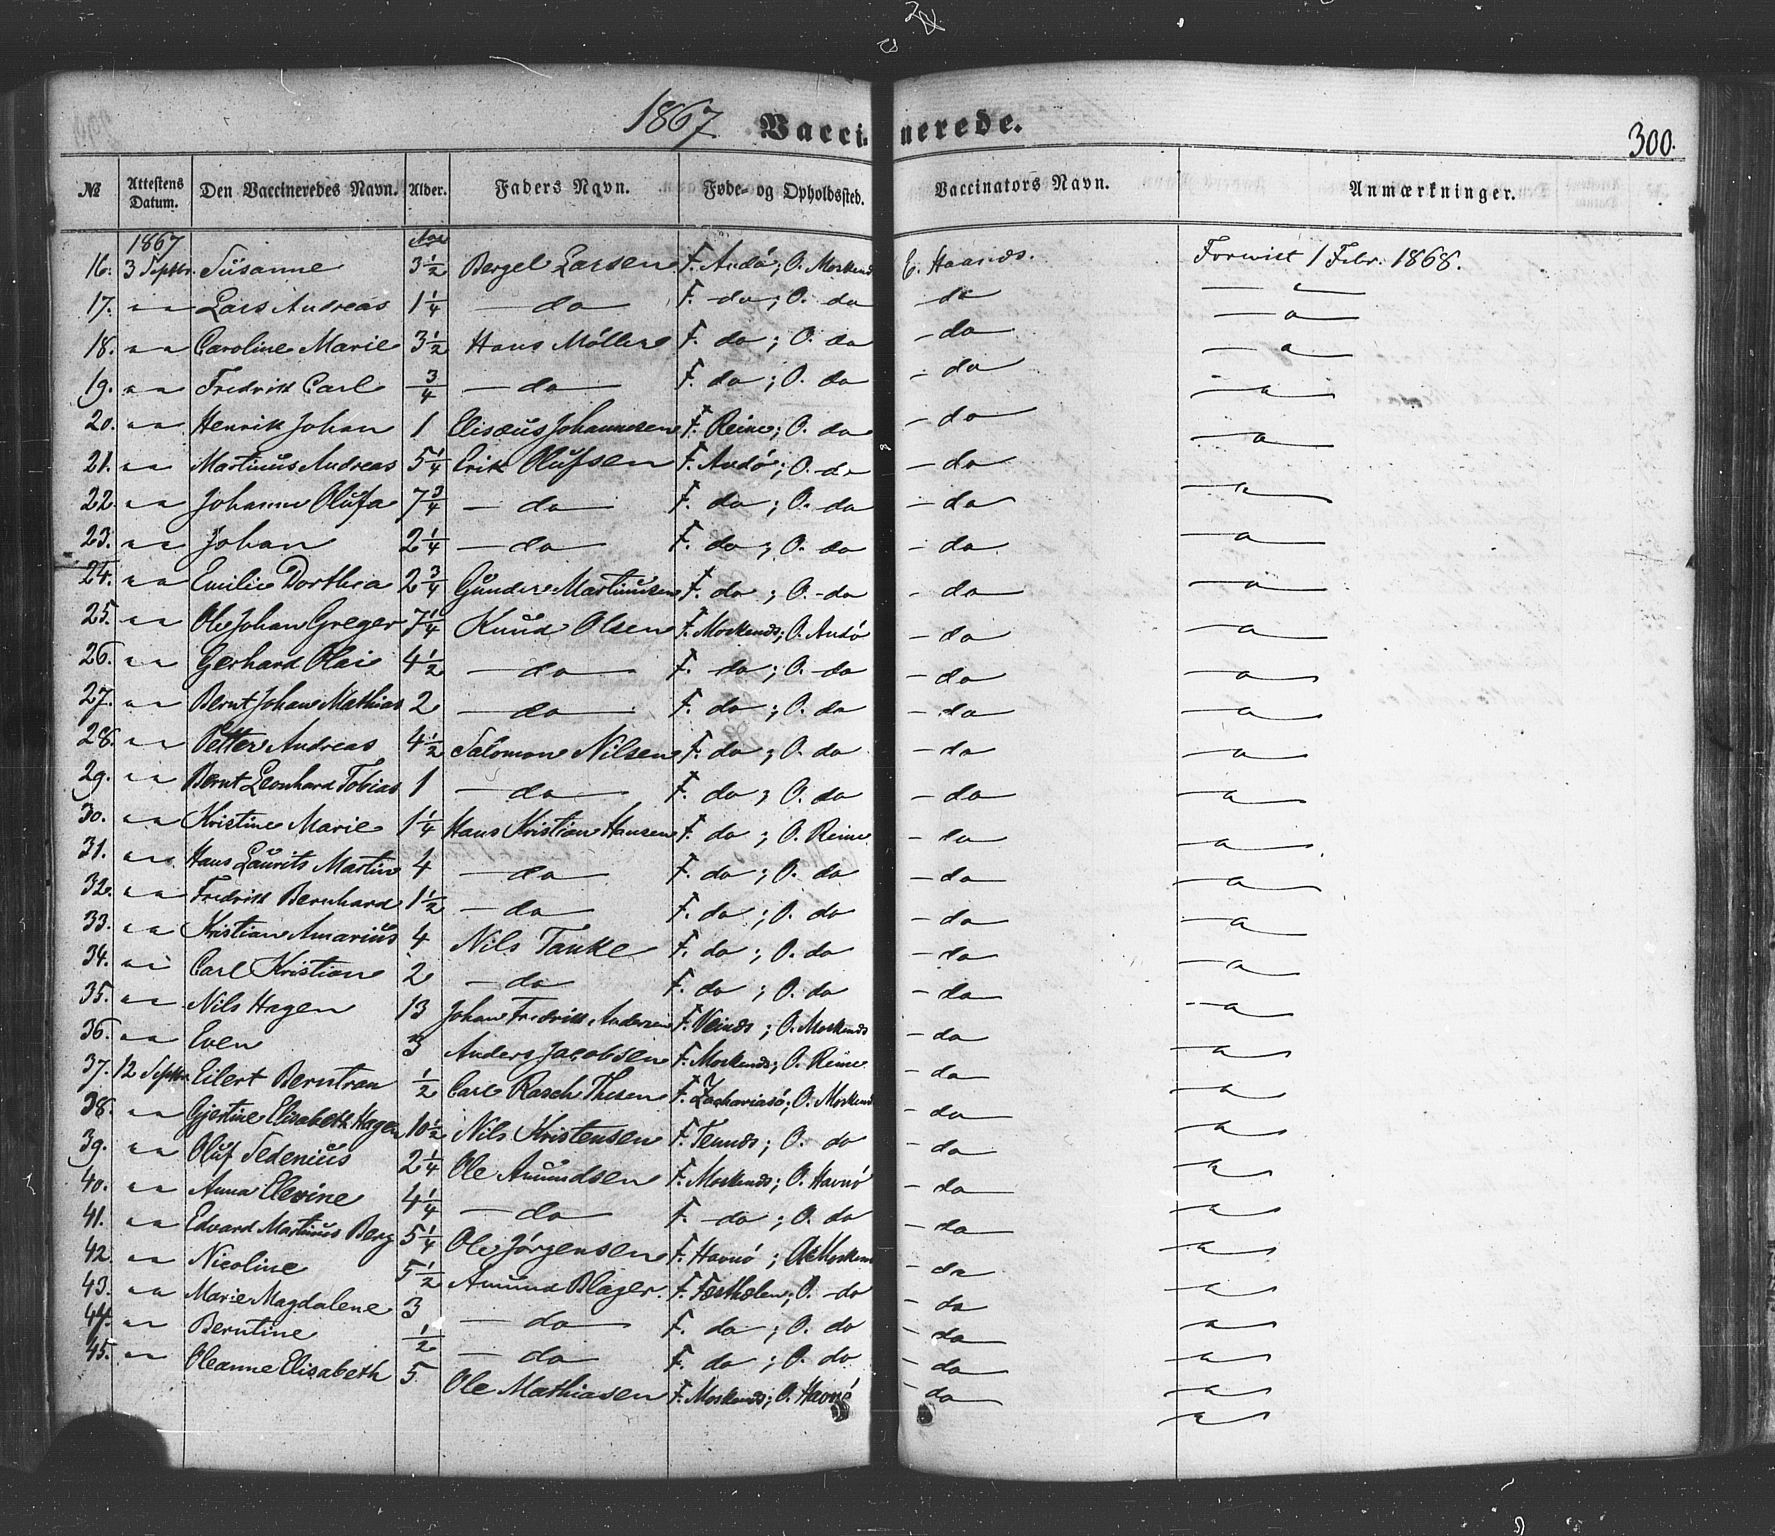 1867 Vaccinerede. 300.
№ Attestens Datum. Den Vaccineredes Navn. Alder. Faders Navn. Føde- og Opholdssted. Vaccinators Navn. Anmærkninger.
1867 Aar
16. 3 Septbr. Susanne 3½ Bergel Larsen F. Andö; O. Moskenes E. Haanæs. Forvist 1 Febr. 1868.
17. " " Lars Andreas 1¼ – do F. do; O. do – do – " –
18. " " Caroline Marie 3½ Hans Möller F. do; O. do – do – " –
19. " " Fredrik Carl ¾ – do F. do; O. do – do – " –
20. " " Henrik Johan 1 Elisæus Johannesen F. Reine; O. do – do – " –
21. " " Martinus Andreas 5¼ Erik Olufsen F. Andö; O. do – do – " –
22. " " Johanna Olufa 7¾ – do F. do; O. do – do – " –
23. " " Johan 2¼ – do F. do; O. do – do – " –
24. " " Emilie Dorthea 2¾ Gunder Martinusen F. do; O. do – do – " –
25. " " Ole Johan Greger 7¼ Knud Olsen F. Moskenæs; O. Andö – do – " –
26. " " Gerhard Olai 4½ – do F. do; O. do – do – " –
27. " " Bernt Johan Mathias 2 – do F. do; O. do – do – " –
28. " " Petter Andreas 4½ Salomon Nilsen F. do; O. do – do – " –
29. " " Bernt Leonhard Tobias 1 – do F. do; O. do – do – " –
30. " " Kristine Marie 1¼ Hans Kristian Hansen F. do; O. Reine – do – " –
31. " " Hans Laurits Martin 4 – do F. do; O. do – do – " –
32. " " Fredrik Bernhard 1½ – do F. do; O. do – do – " –
33. " " Kristian Amarius 4 Nils Tanke F. do; O. do – do – " –
34. " " Carl Kristian 2 – do F. do; O. do – do – " –
35. " " Nils Hagen 13 Johan Fredrik Andersen F. Veinæs; O. Moskenæs – do – " –
36. " " Even 3 Anders Jacobsen F. Moskenæs; O. Reine – do – " –
37. 12 Septbr. Eilert Berntran ½ Carl Rasch Thesen F. Zachariasö; O. Moskenæs – do – " –
38. " " Gjertine Elisabeth Hagen 10½ Nils Kristensen F. Tennæs; O. do – do – " –
39. " " Oluf Sedenius 2¼ Ole Amundsen F. Moskenæs; O. Havnö – do – " –
40. " " Anna Elevine 4¼ – do F. do; O. do – do – " –
41. " " Edvard Martinus Berg 5¼ Ole Jörgensen F. Havnö; O. Moskenæs – do – " –
42. " " Nicoline 5½ Amund Blager. F. Festhælen; O. do – do – " –
43. " " Marie Magdalene 3 – do F. do; O. do – do – " –
44. " " Berntine ½ – do F. do; O. do – do – " –
45. " " Oleanne Elisabeth 5 Ole Mathiasen F. Moskenæs; O. Havnö – do – " –